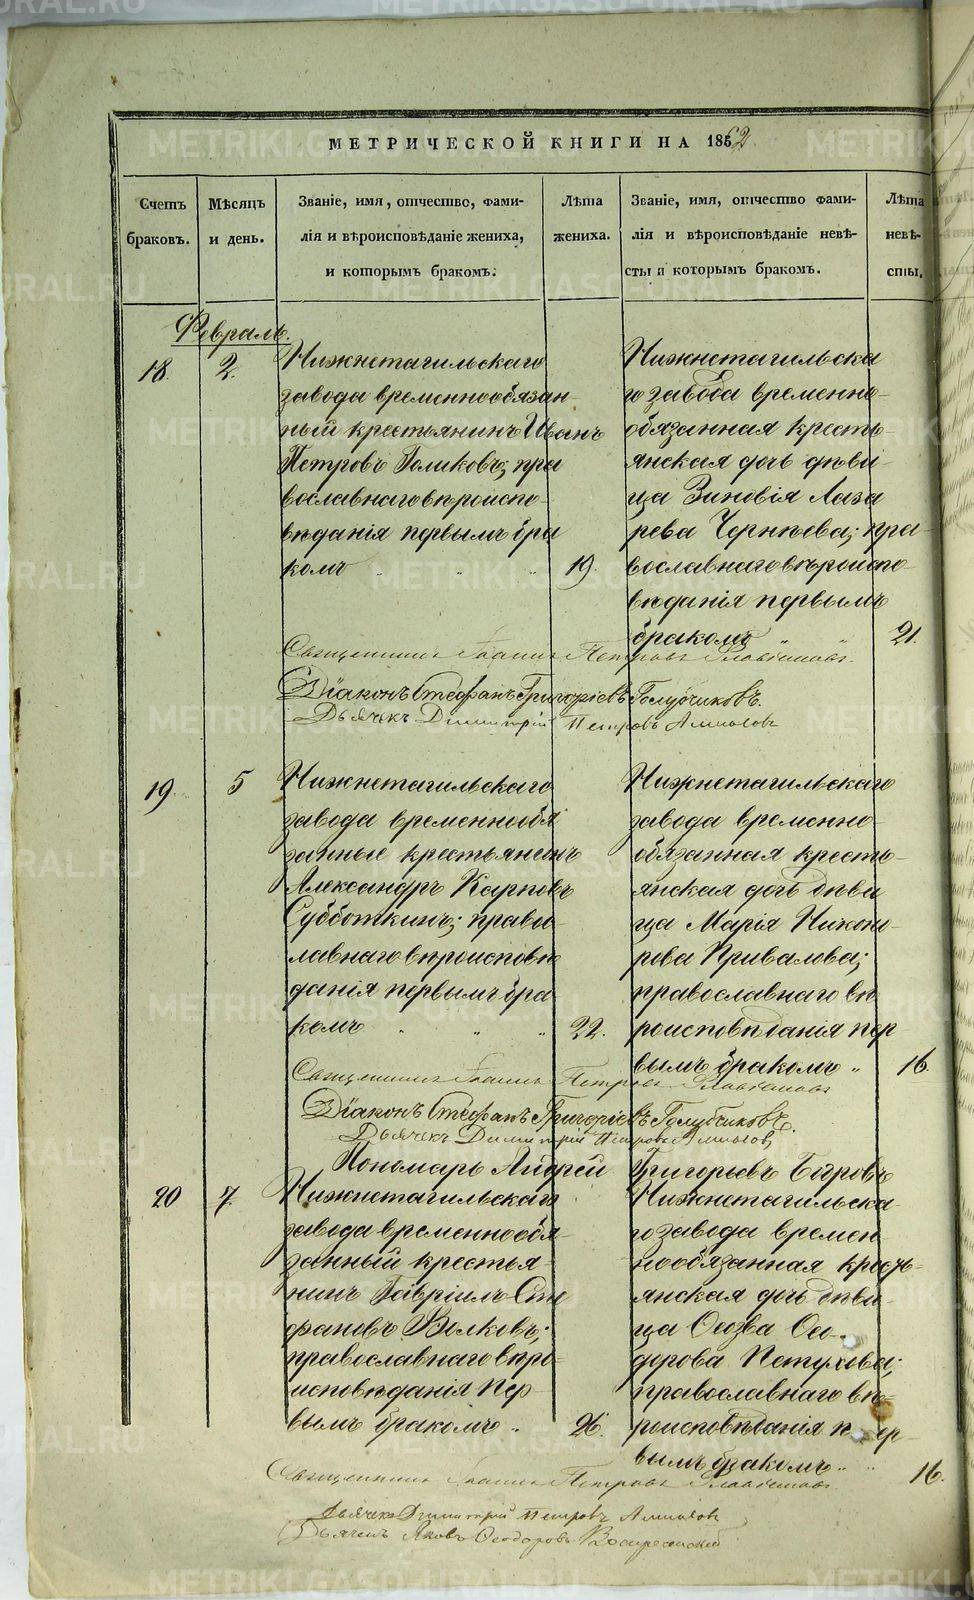 МЕТРИЧЕСКОЙ КНИГИ НА 1862
Счетъ браковъ.
Мѣсяцъ и день.
Званіе, имя, отчество, фами-
лія и вѣроисповѣданіе жениха,
и которымъ бракомъ.
Лѣта жениха.
Званіе, имя, отчество фами-
лія и вѣроисповѣданіе невѣ-
сты и которымъ бракомъ.
Лѣта невѣ-
сты.
Февраль.
18.
2.
Нижнетагильскаго
завода временнообязан-
ный крестьянинъ Иванъ
Петровъ Голиковъ; пра
вославнаго вѣроиспо-
вѣданія первымъ бра
комъ " " "
19.
Нижнетагильска
го завода временно-
обязанная кресть-
янская дочь дѣви-
ца Зиновія Лаза
рева Чернѣева; пра-
вославнаго вѣроиспо-
вѣданія первымъ
бракомъ " "
21.
Священникъ Іоаннъ Петровъ
Діаконъ Стефанъ Григоріевъ Голубчиковъ.
Дьячекъ Димитрій Петровъ
19.
5
Нижнетагильскаго
завода временнообя
занные крестьянинъ
Александръ Карповъ
Субботкинъ; право-
славнаго вѣроисповѣ
данія первымъ бра
комъ " " "
22.
Нижнетагильскаго
завода временно-
обязанная кресть-
янская дочь дѣви
ца Марія Никоно-
рова Привалова;
православнаго вѣ-
роисповѣданія пер
вымъ бракомъ "
16.
Священникъ Іоаннъ Петровъ
Діаконъ Стефанъ Григоріевъ Голубчиковъ.
Дьячекъ Димитрій Петровъ
Пономарь Андрей Григорьевъ
20
7.
Нижнетагильскаго
завода временнообя-
занный крестья-
нинъ Гавріилъ Сте
фановъ Волковъ;
православнаго вѣро-
исповѣданія пер-
вымъ бракомъ "
26.
Нижнетагильска-
го завода времен
нообязанная кресть-
янская дочь дѣви-
ца Ѳеозва Ѳео-
дорова Пѣтухова;
православнаго вѣ-
роисповѣданія пер-
вымъ бракомъ " "
16.
Священникъ Іоаннъ Петровъ
Дьячекъ Димитрій Петровъ
Дьячекъ Яковъ Ѳеодоровъ Воскресенскій
METRIKI.GASO-URAL.RU